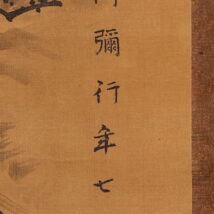 彌行年七